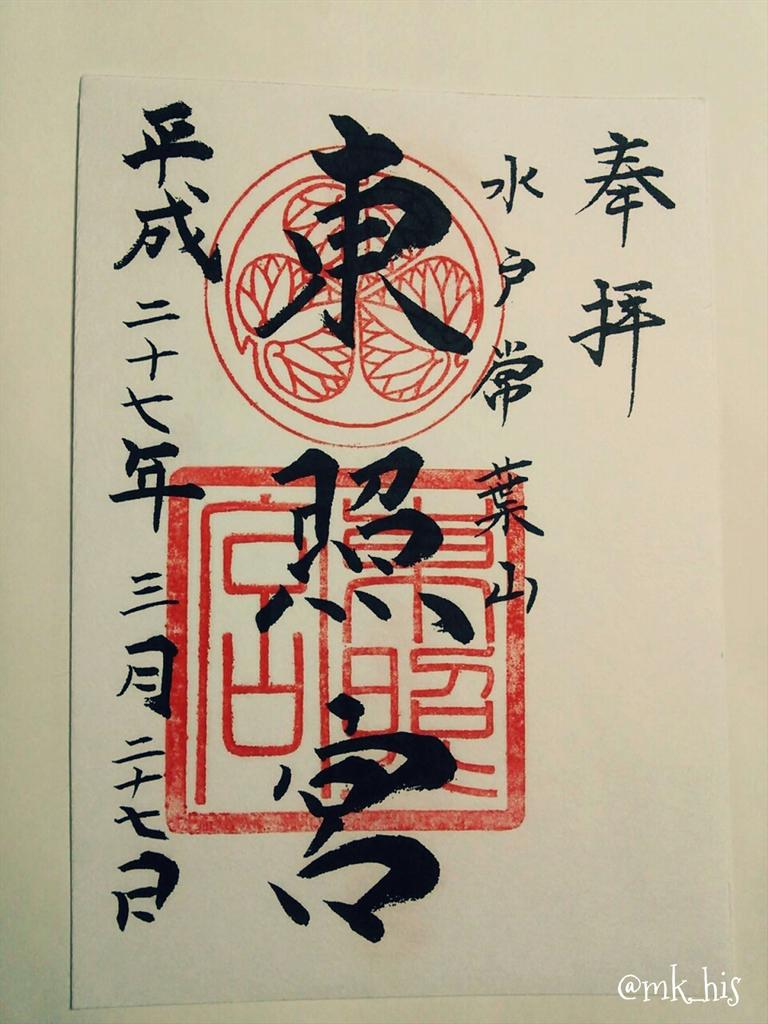 奉拝
水戸常葉山
東照宮
平成二十七年三月二十七日
東照宮
@mk_his